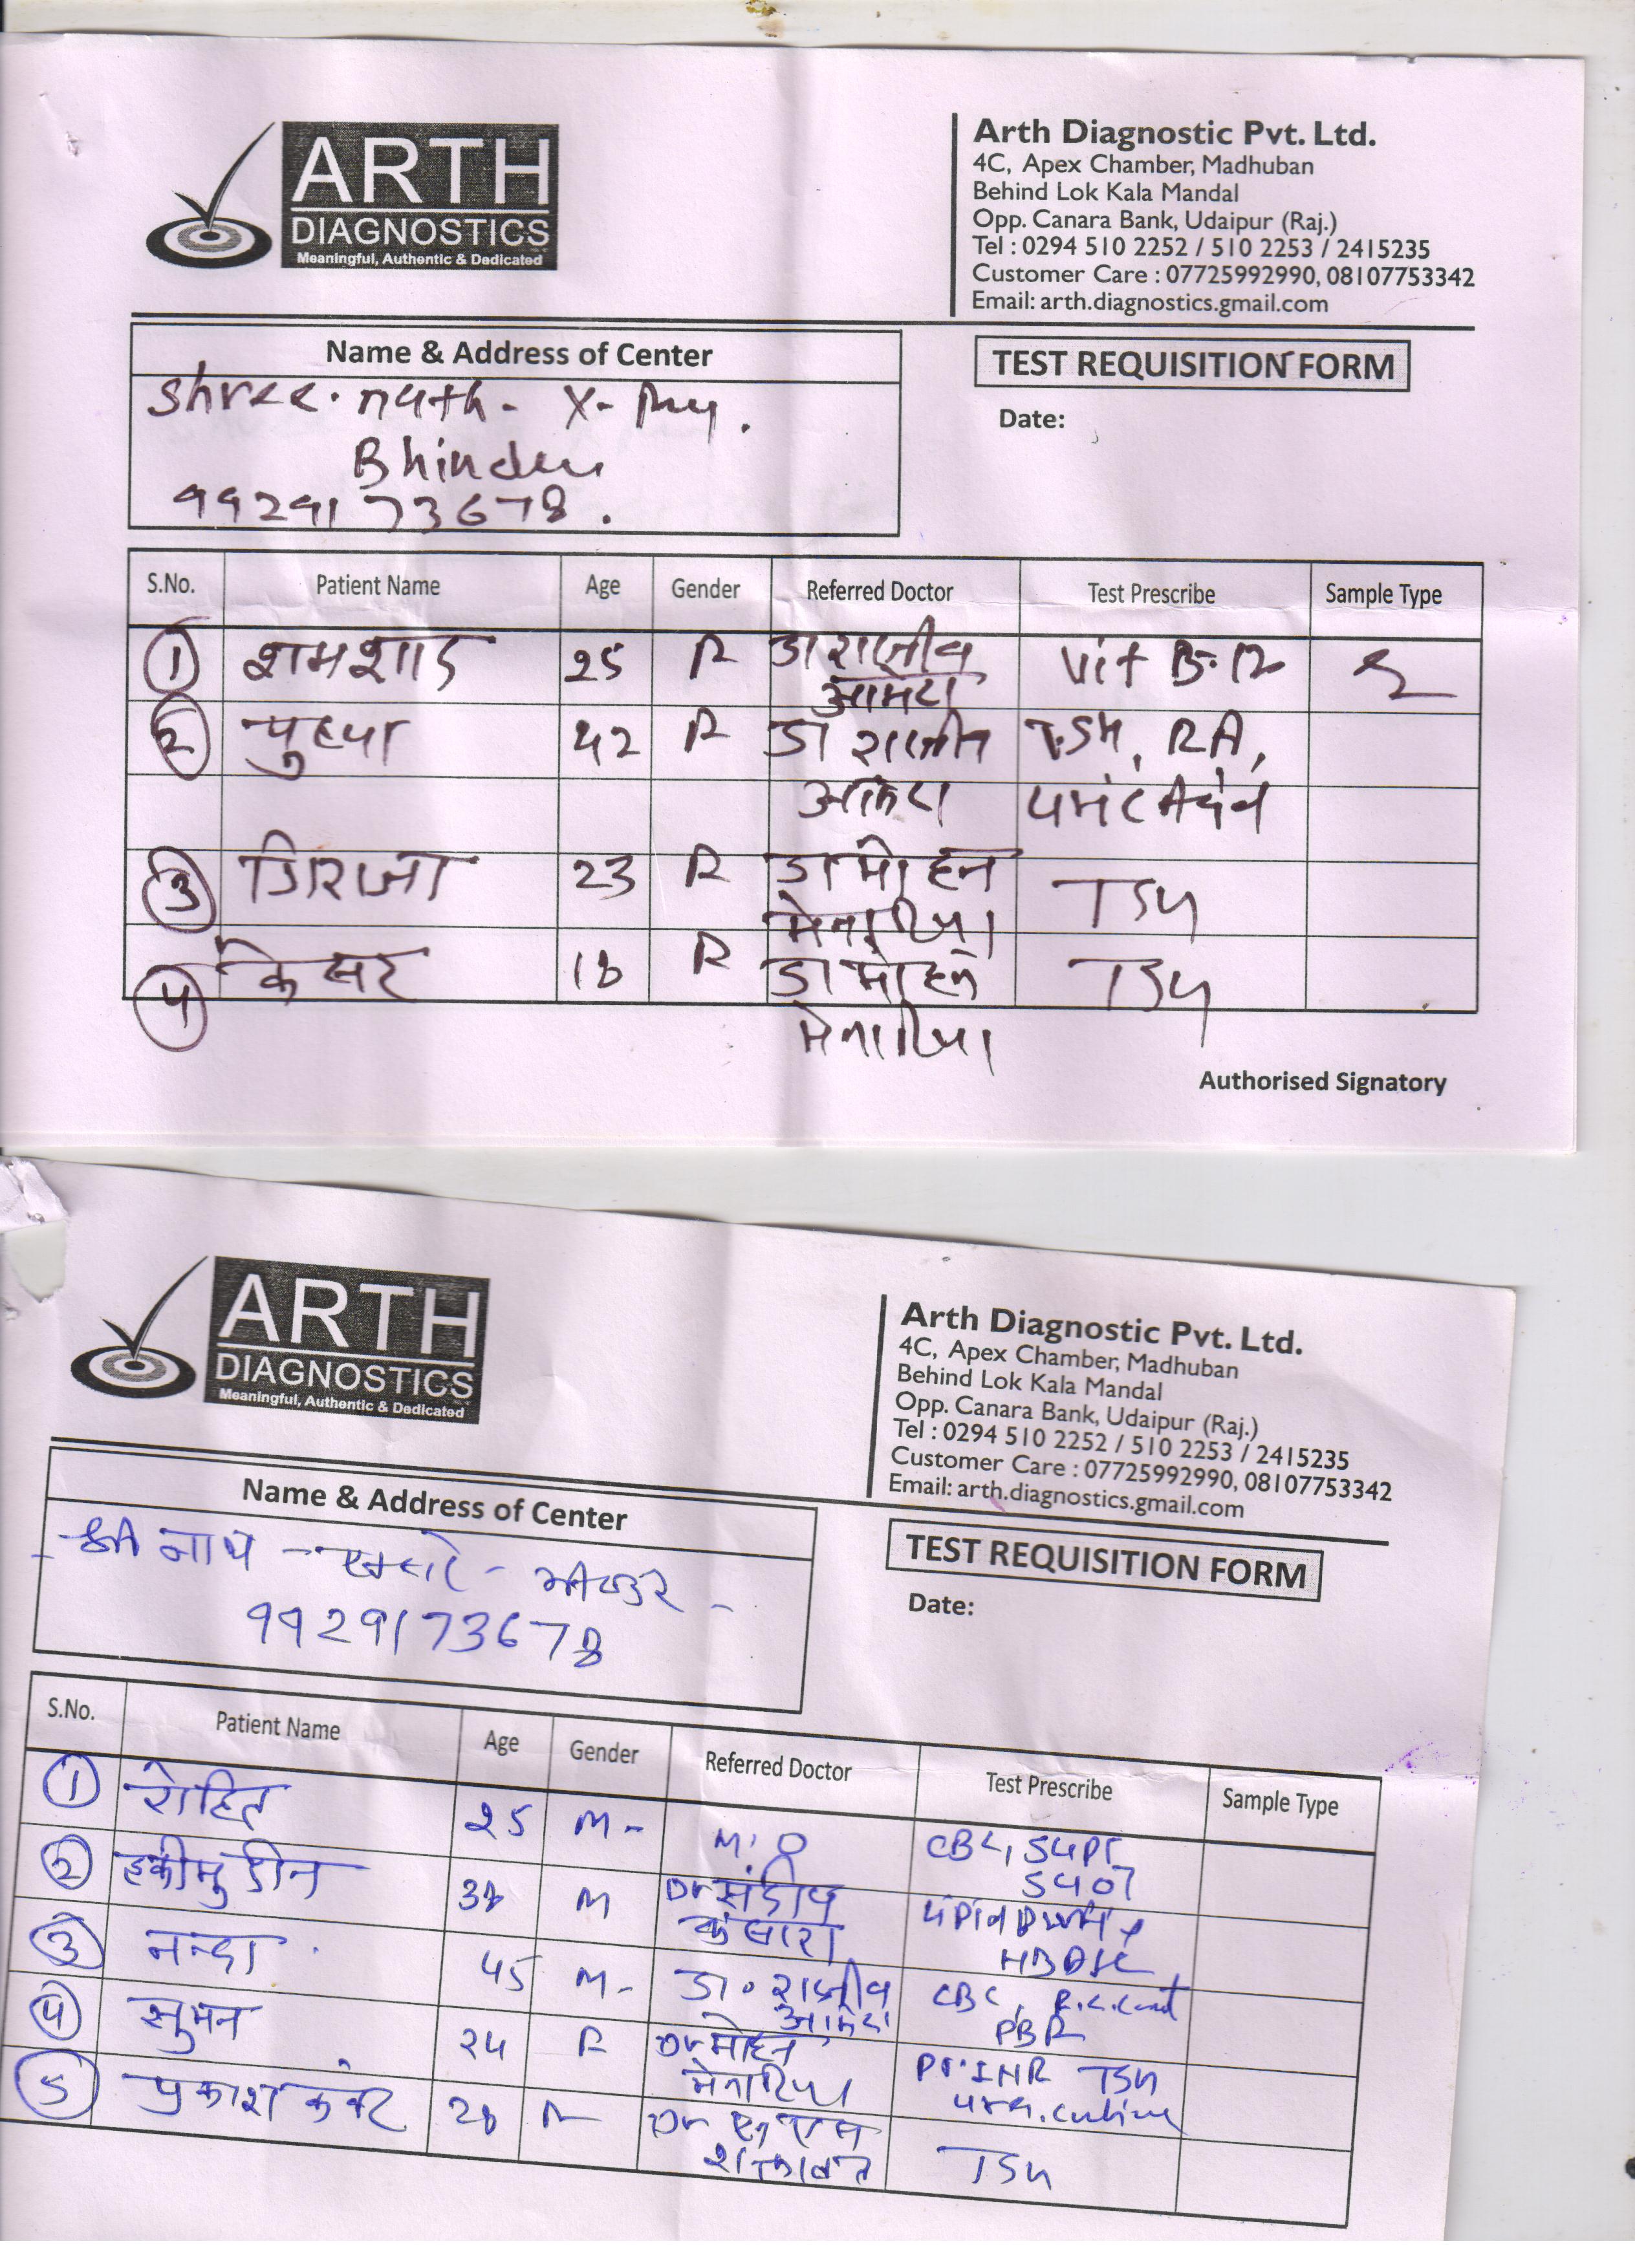 ARTH
DIAGNOSTICS
Meaningful, Authentic & Dedicated
Arth Diagnostic Pvt. Ltd.
4C, Apex Chamber, Madhuban
Behind Lok Kala Mandal
Opp. Canara Bank, Udaipur (Raj.)
Tel : 0294 510 2252 / 510 2253 / 2415235
Customer Care : 07725992990, 08107753342
Email: arth.diagnostics.gmail.com
Name & Address of Center
TEST REQUISITION FORM
Shree. nath - X-Ray.
Date:
Bhinder
9929173678.
S.No. Patient Name Age Gender Referred Doctor Test Prescribe Sample Type
1 शमशाद 25 F डा राजीव Vit B-12
आमेटा
2 पुष्पा 42 F डा राजीव TSH, RA,
आमेटा
3 गिराजा 23 F डा मोहन TSH
मेनारिया
4 केसर 18 F डा मोहन TSH
मेनारिया
Authorised Signatory
ARTH
DIAGNOSTICS
Meaningful, Authentic & Dedicated
Arth Diagnostic Pvt. Ltd.
4C, Apex Chamber, Madhuban
Behind Lok Kala Mandal
Opp. Canara Bank, Udaipur (Raj.)
Tel : 0294 510 2252 / 510 2253 / 2415235
Customer Care : 07725992990, 08107753342
Email: arth.diagnostics.gmail.com
Name & Address of Center
TEST REQUISITION FORM
श्री नाथ - एक्सरे - भीण्डर -
Date:
9929173678
S.No. Patient Name Age Gender Referred Doctor Test Prescribe Sample Type
1 रोहित 25 M - M.O CBC, SGPT
SGOT
2 हकीमुद्दीन 38 M Dr संदीप
कंसारा
3 नन्दा 45 M - डा. राजीव CBC,
आमेटा PBF
4 सुमन 24 F Dr मोहन PT INR TSH
मेनारिया
5 प्रकाश कंवर 28 F Dr एन एम TSH
शक्तावत